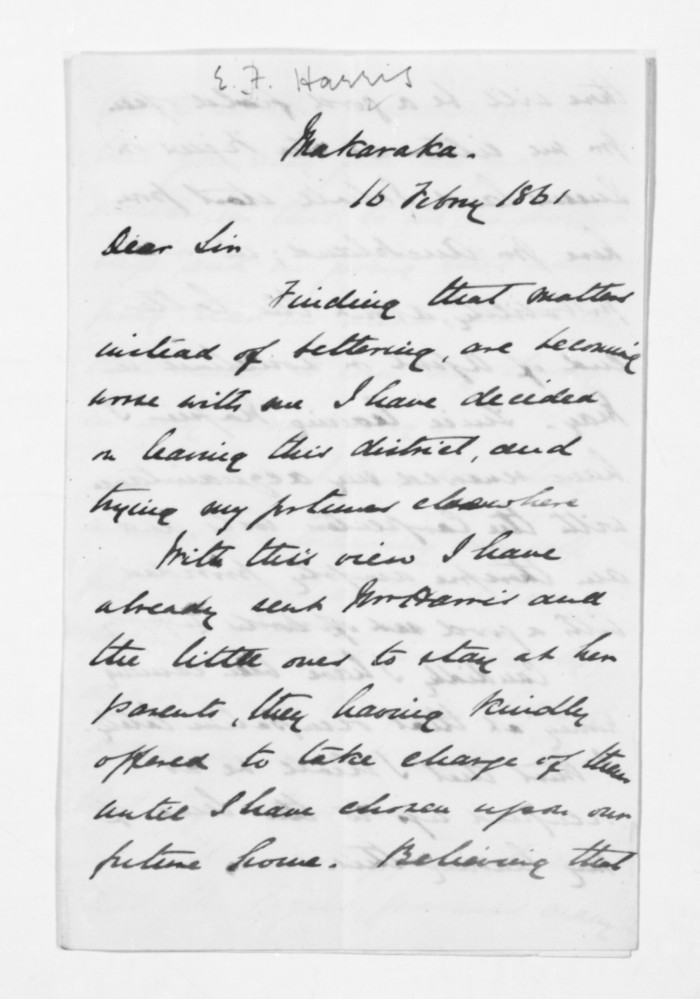 E. F. Harris
Makaraka.
16 Febry 1861
Dear Sir
Finding that matters
instead of bettering, are becoming
worse with me I have decided
on leaving this district, and
trying my fortunes elsewhere
With this view I have
already sent Mrs Harris and
the little ones to stay at her
parents, they having kindly
offered to take charge of them
until I have chosen upon our
future home. Believing that